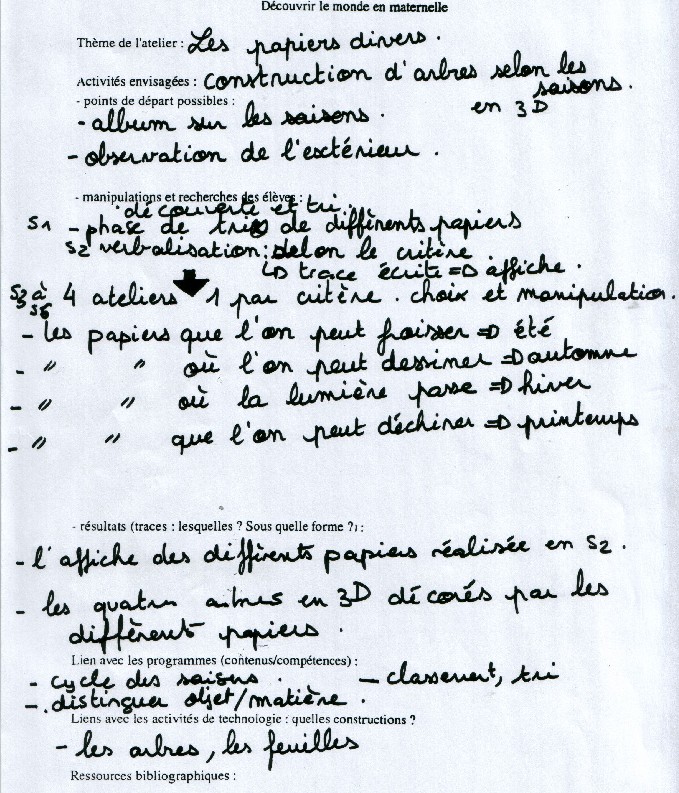 Découvrir le monde en maternelle
Thème de l'atelier : Les papiers divers.
Activités envisagées : construction d'arbres selon les saisons.
- points de départ possibles : en 3D
- album sur les saisons.
- observation de l'extérieur.
- manipulations et recherches des élèves :
découverte et tri.
S1 - phase de tri de différents papiers
S2 verbalisation : selon le critère.
↳ trace écrite => affiche.
S3 à S6 4 ateliers 1 par critère. choix et manipulation.
- les papiers que l'on peut froisser => été
- " " où l'on peut dessiner => automne
- " " où la lumière passe => hiver
- " " que l'on peut déchirer => printemps
- résultats (traces : lesquelles ? Sous quelle forme ?) :
- l'affiche des différents papiers réalisée en S2.
- les quatre arbres en 3D décorés par les
différents papiers.
Lien avec les programmes (contenus/compétences) :
- cycle des saisons. - classement, tri
- distinguer objet/matière.
Liens avec les activités de technologie : quelles constructions ?
- les arbres, les feuilles
Ressources bibliographiques :